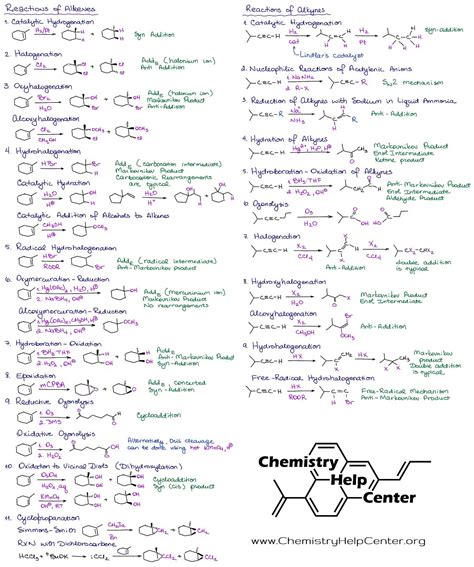 Reactions of Alkenes
1. Catalytic Hydrogenation
H₂/Pt
Syn Addition
2. Halogenation
Cl₂
Add_E (halonium ion)
Anti Addition
3. Oxyhalogenation
Br₂
H₂O
Add_E (halonium ion)
Markovnikov Product
Anti-Addition
Alcoxyhalogenation
Cl₂
CH₃OH
4. Hydrohalogenation
HBr
Add_E (carbocation intermediate)
Markovnikov Product
Carbocationic Rearrangements
are typical
Catalytic Hydration
H₂O
Catalytic Addition of Alcohols to Alkenes
CH₃OH
5. Radical Hydrohalogenation
HBr
ROOR
Add_R (radical intermediate)
Anti-Markovnikov Product
6. Oxymercuration-Reduction
1. Hg(OAc)₂, H₂O, H⊕
2. NaBH₄, OH⊖
Add_E (mercurinium ion)
Markovnikov Product
No rearrangements
Alcoxymercuration-Reduction
1. Hg(OAc)₂, CH₃OH, H⊕
2. NaBH₄, OH⊖
7. Hydroboration-Oxidation
1. BH₃·THF
2. H₂O₂, OH⊖
Anti-Markovnikov Product
Syn-Addition
8. Epoxidation
mCPBA
Add_E, concerted
Syn-Addition
9. Reductive Ozonolysis
1. O₃
2. DMS
Cycloaddition
Oxidative Ozonolysis
1. O₃
2. H₂O₂
Alternatively, this cleavage
can be done using hot KMnO₄, H⊕
10. Oxidation to Vicinal Diols (Dihydroxylation)
OsO₄
H₂O₂, aq
Cycloaddition
Syn (cis) product
KMnO₄
OH⊖, RT
11. Cyclopropanation
Simmons-Smith
Rxn with Dichlorocarbene
HCCl₃ + ᵗBuOK
Reactions of Alkynes
1. Catalytic Hydrogenation
C≡C-H
H₂
cat
H₂
Pt
Syn-addition
Lindlar's catalyst
2. Nucleophilic Reactions of Acetylenic Anions
C≡C-H
1. NaNH₂
2. R-X
C≡C-R
S_N2 mechanism
3. Reduction of Alkynes with Sodium in Liquid Ammonia
C≡C-R
Na
NH₃
Anti-Addition
4. Hydration of Alkynes
C≡C-H
Hg²⁺, H₂O, H⊕
Markovnikov Product
Enol Intermediate
Ketone product
5. Hydroboration-Oxidation of Alkynes
C≡C-H
1. BH₃·THF
2. H₂O₂, OH⊖
Anti-Markovnikov Product
Enol Intermediate
Aldehyde Product
6. Ozonolysis
O₃
H₂O
7. Halogenation
C≡C-H
X₂
CCl₄
X₂
CCl₄
CX₂-CHX₂
Anti-Addition
double addition
is typical
8. Hydroxyhalogenation
C≡C-H
X₂
H₂O
Markovnikov Product
Enol Intermediate
Alcoxyhalogenation
C≡C-H
X₂
CH₃OH
Anti-Addition
9. Hydrohalogenation
C≡C-H
HX
HX
Markovnikov
product
Double addition
is typical
Free-Radical Hydrohalogenation
C≡C-H
HX
ROOR
Free-Radical Mechanism
Anti-Markovnikov Product
Chemistry
Help
Center
www.ChemistryHelpCenter.org